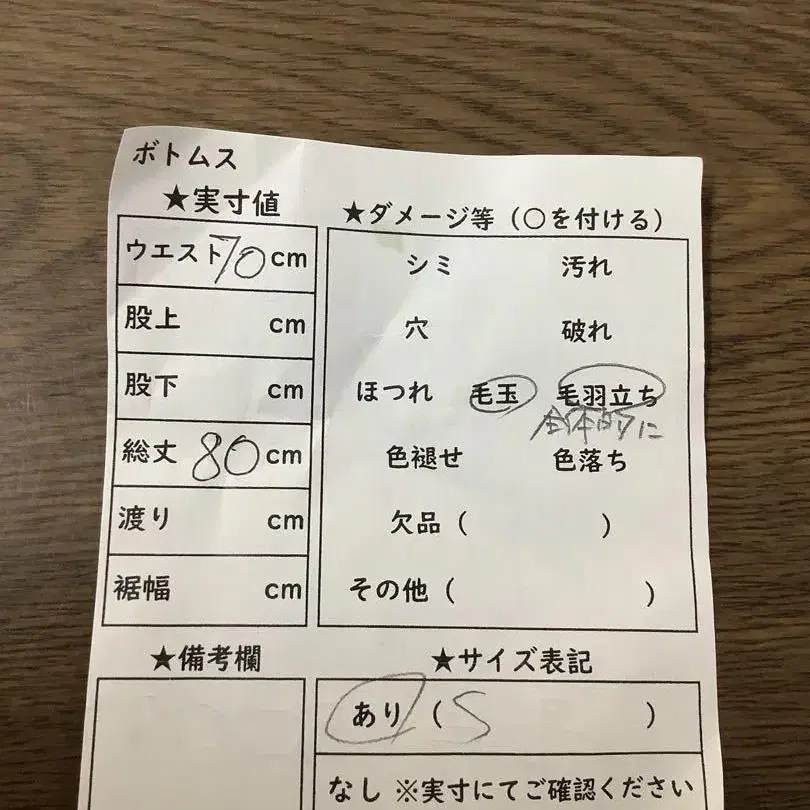 ボトムス
★実寸値
ウエスト 70 cm
股上 cm
股下 cm
総丈 80 cm
渡り cm
裾幅 cm
★ダメージ等（○を付ける）
シミ 汚れ
穴 破れ
ほつれ 毛玉 毛羽立ち
全体的に
色褪せ 色落ち
欠品（ ）
その他（ ）
★備考欄
★サイズ表記
あり（S ）
なし ※実寸にてご確認ください